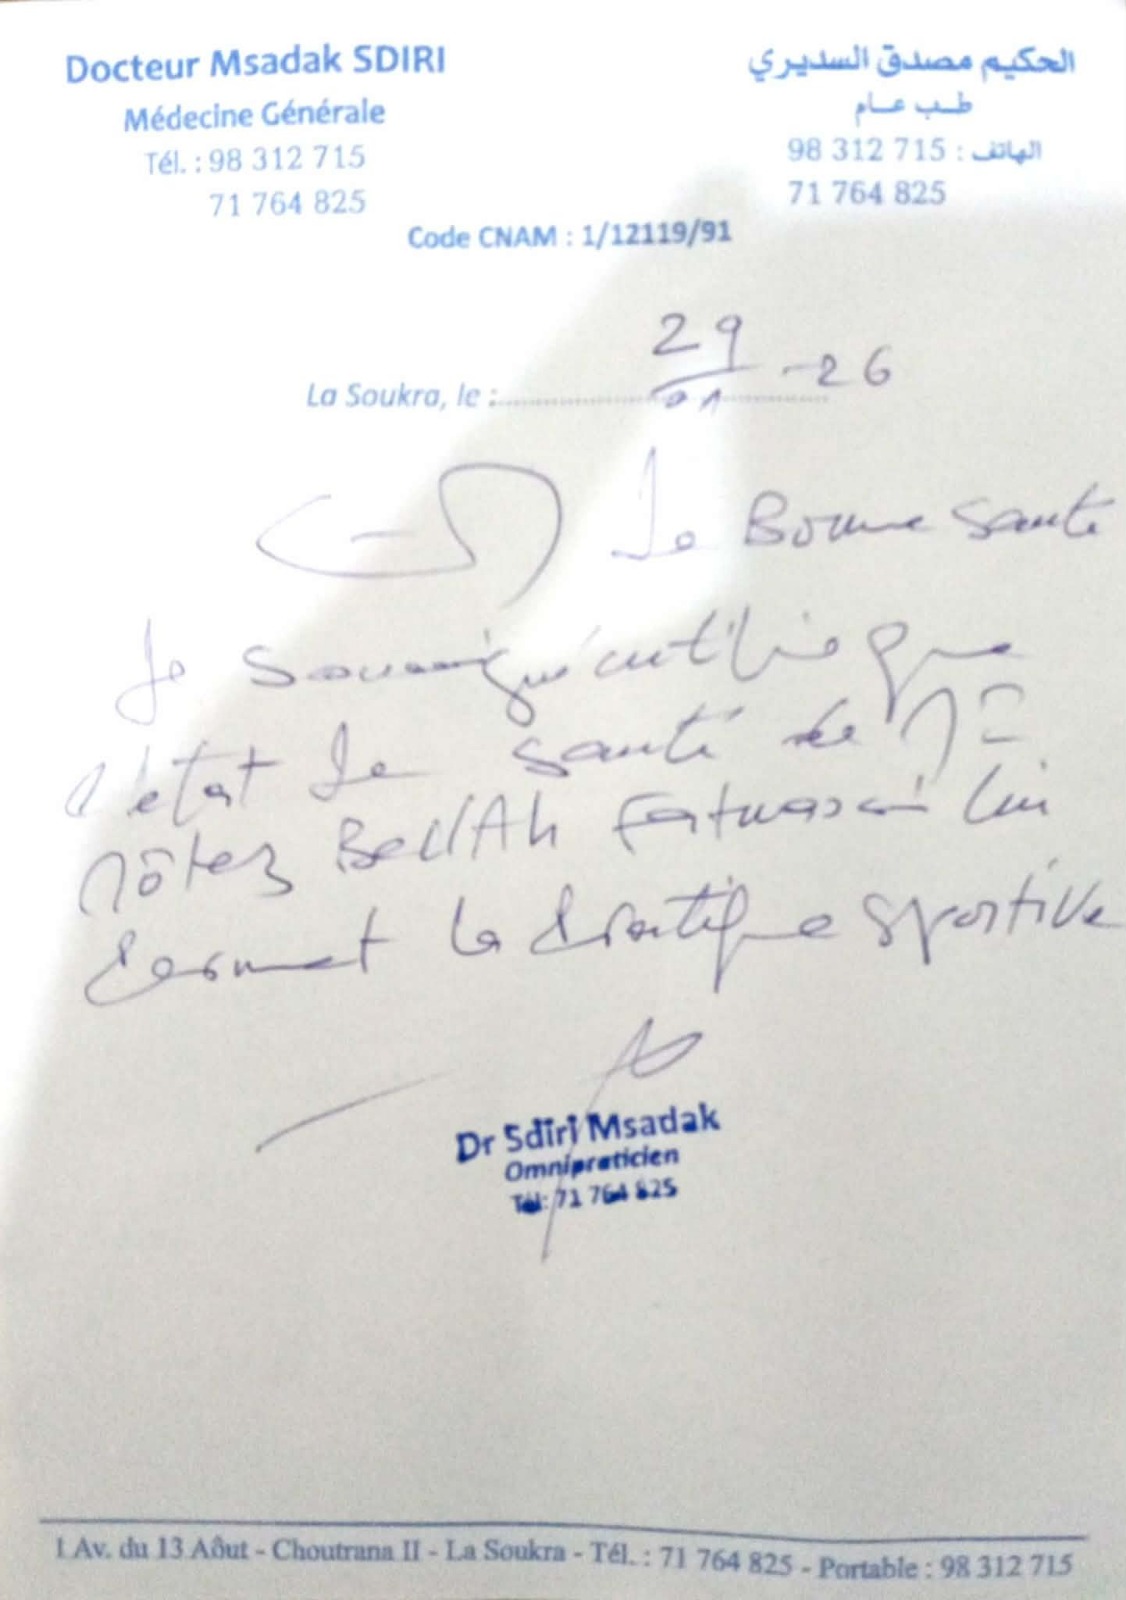 Docteur Msadak SDIRI
Médecine Générale
Tél. : 98 312 715
71 764 825
الحكيم مصدق السديري
طب عام
الهاتف : 98 312 715
71 764 825
Code CNAM : 1/12119/91
La Soukra, le : 29/01-26
de Bonne santé
Je soussigné certifie que
l'état de santé de
Bellah lui
permet la pratique sportive
Dr Sdiri Msadak
Omnipraticien
Tél: 71 764 825
1 Av. du 13 Aôut - Choutrana II - La Soukra - Tél. : 71 764 825 - Portable : 98 312 715